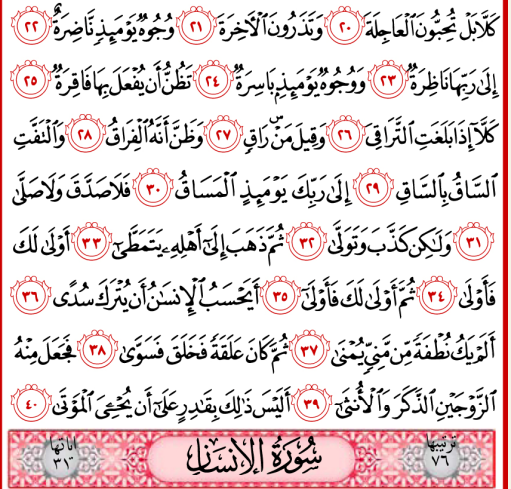 كَلَّا بَلْ تُحِبُّونَ الْعَاجِلَةَ ٢٠ وَتَذَرُونَ الْآخِرَةَ ٢١ وُجُوهٌ يَوْمَئِذٍ نَّاضِرَةٌ ٢٢
إِلَىٰ رَبِّهَا نَاظِرَةٌ ٢٣ وَوُجُوهٌ يَوْمَئِذٍ بَاسِرَةٌ ٢٤ تَظُنُّ أَن يُفْعَلَ بِهَا فَاقِرَةٌ ٢٥
كَلَّا إِذَا بَلَغَتِ التَّرَاقِيَ ٢٦ وَقِيلَ مَنْ رَاقٍ ٢٧ وَظَنَّ أَنَّهُ الْفِرَاقُ ٢٨ وَالْتَفَّتِ
السَّاقُ بِالسَّاقِ ٢٩ إِلَىٰ رَبِّكَ يَوْمَئِذٍ الْمَسَاقُ ٣٠ فَلَا صَدَّقَ وَلَا صَلَّىٰ
٣١ وَلَٰكِن كَذَّبَ وَتَوَلَّىٰ ٣٢ ثُمَّ ذَهَبَ إِلَىٰ أَهْلِهِ يَتَمَطَّىٰ ٣٣ أَوْلَىٰ لَكَ
فَأَوْلَىٰ ٣٤ ثُمَّ أَوْلَىٰ لَكَ فَأَوْلَىٰ ٣٥ أَيَحْسَبُ الْإِنسَانُ أَن يُتْرَكَ سُدًى ٣٦
أَلَمْ يَكُ نُطْفَةً مِّن مَّنِيٍّ يُمْنَىٰ ٣٧ ثُمَّ كَانَ عَلَقَةً فَخَلَقَ فَسَوَّىٰ ٣٨ فَجَعَلَ مِنْهُ
الزَّوْجَيْنِ الذَّكَرَ وَالْأُنثَىٰ ٣٩ أَلَيْسَ ذَٰلِكَ بِقَادِرٍ عَلَىٰ أَن يُحْيِيَ الْمَوْتَىٰ ٤٠
ترتيبها ٧٦ سُورَةُ الْإِنسَانِ آياتها ٣١